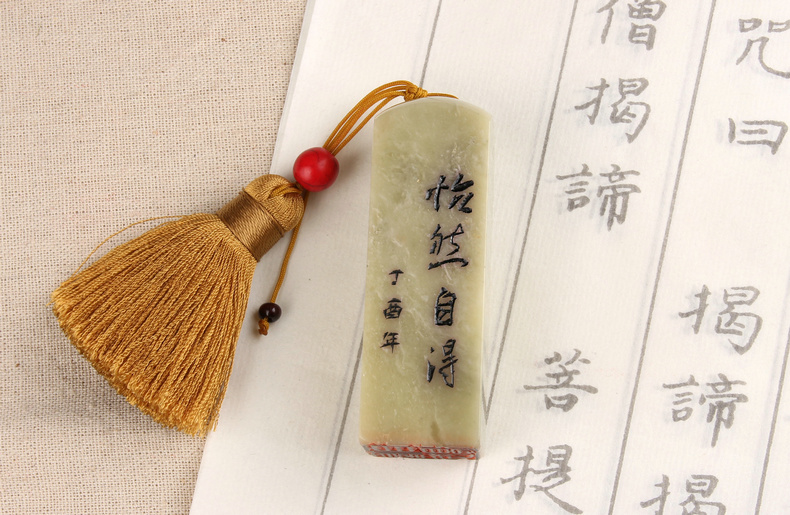 怡然自得
丁酉年
咒曰 揭諦揭
僧揭諦 菩提